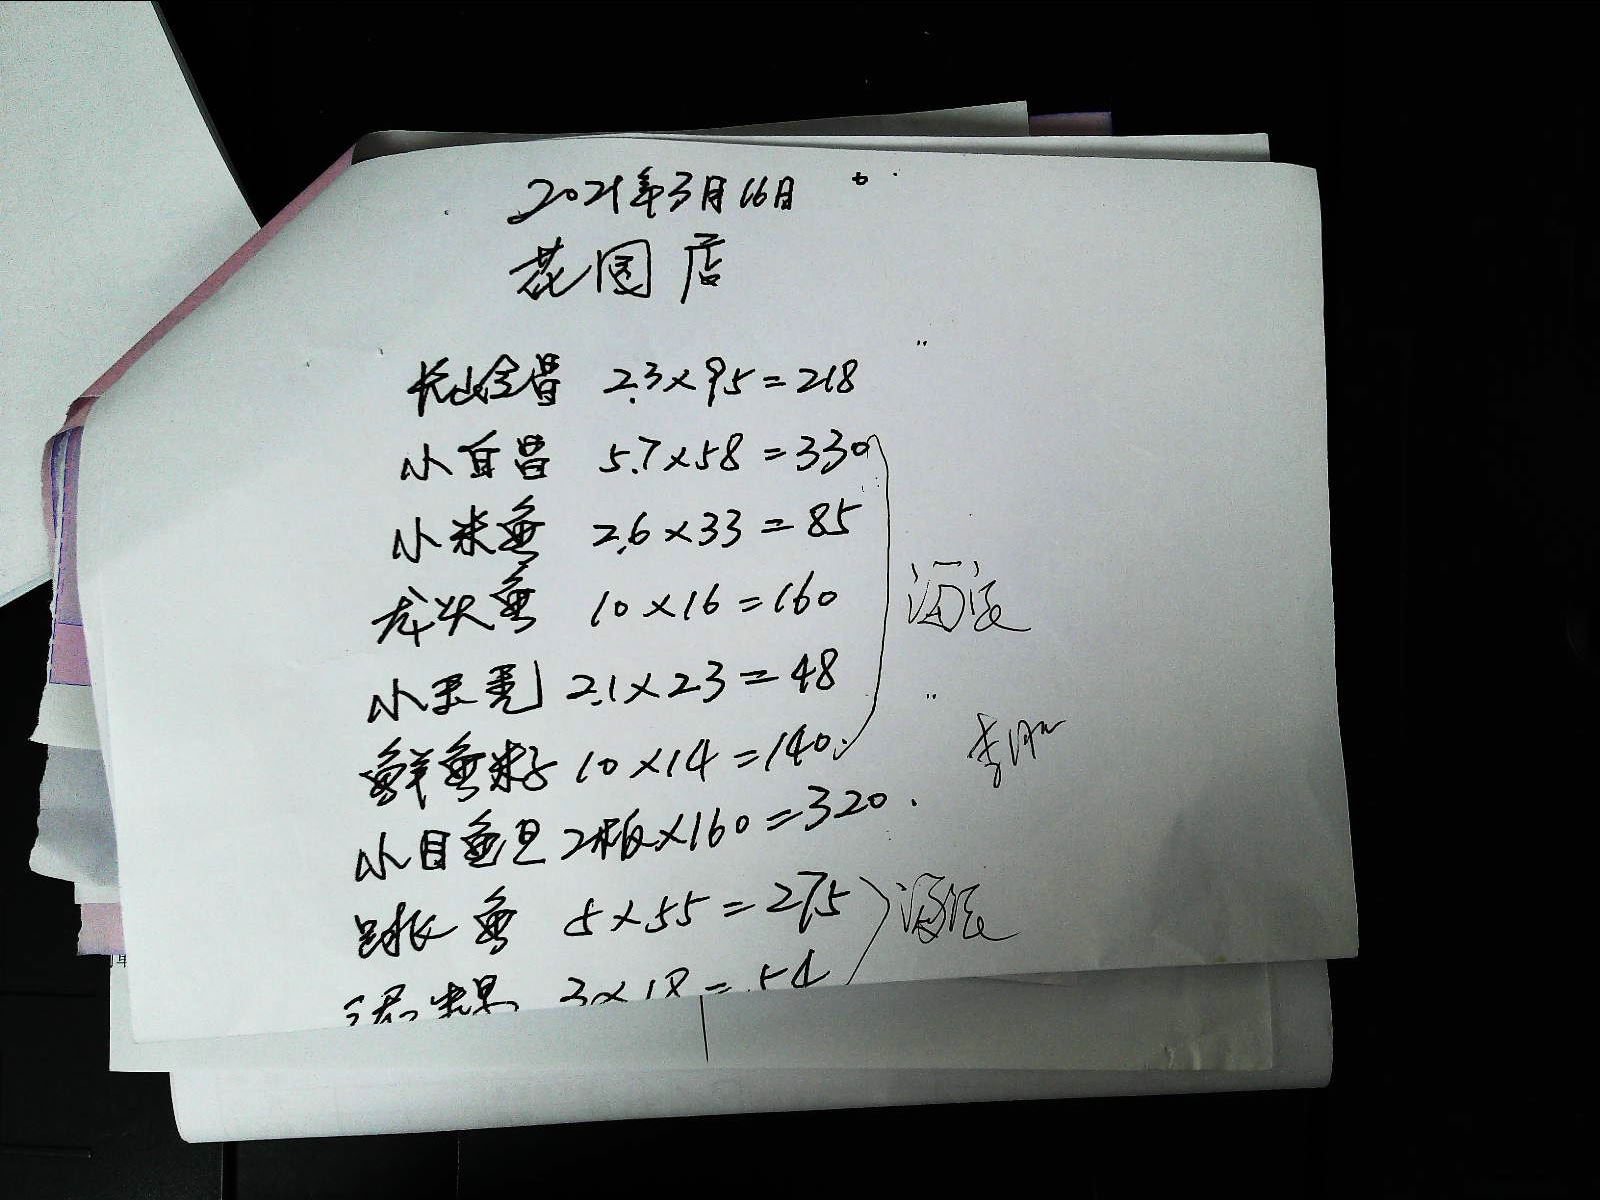 2021年3月16日
花园店
长山金昌 2.3×95=218
小白昌 5.7×58=330
小米鱼 2.6×33=85
龙头鱼 10×16=160
小 2.1×23=48
鲜鱼籽 10×14=140.
小目鱼旦 2板×160=320.
鱼 5×55=275
3×18=54